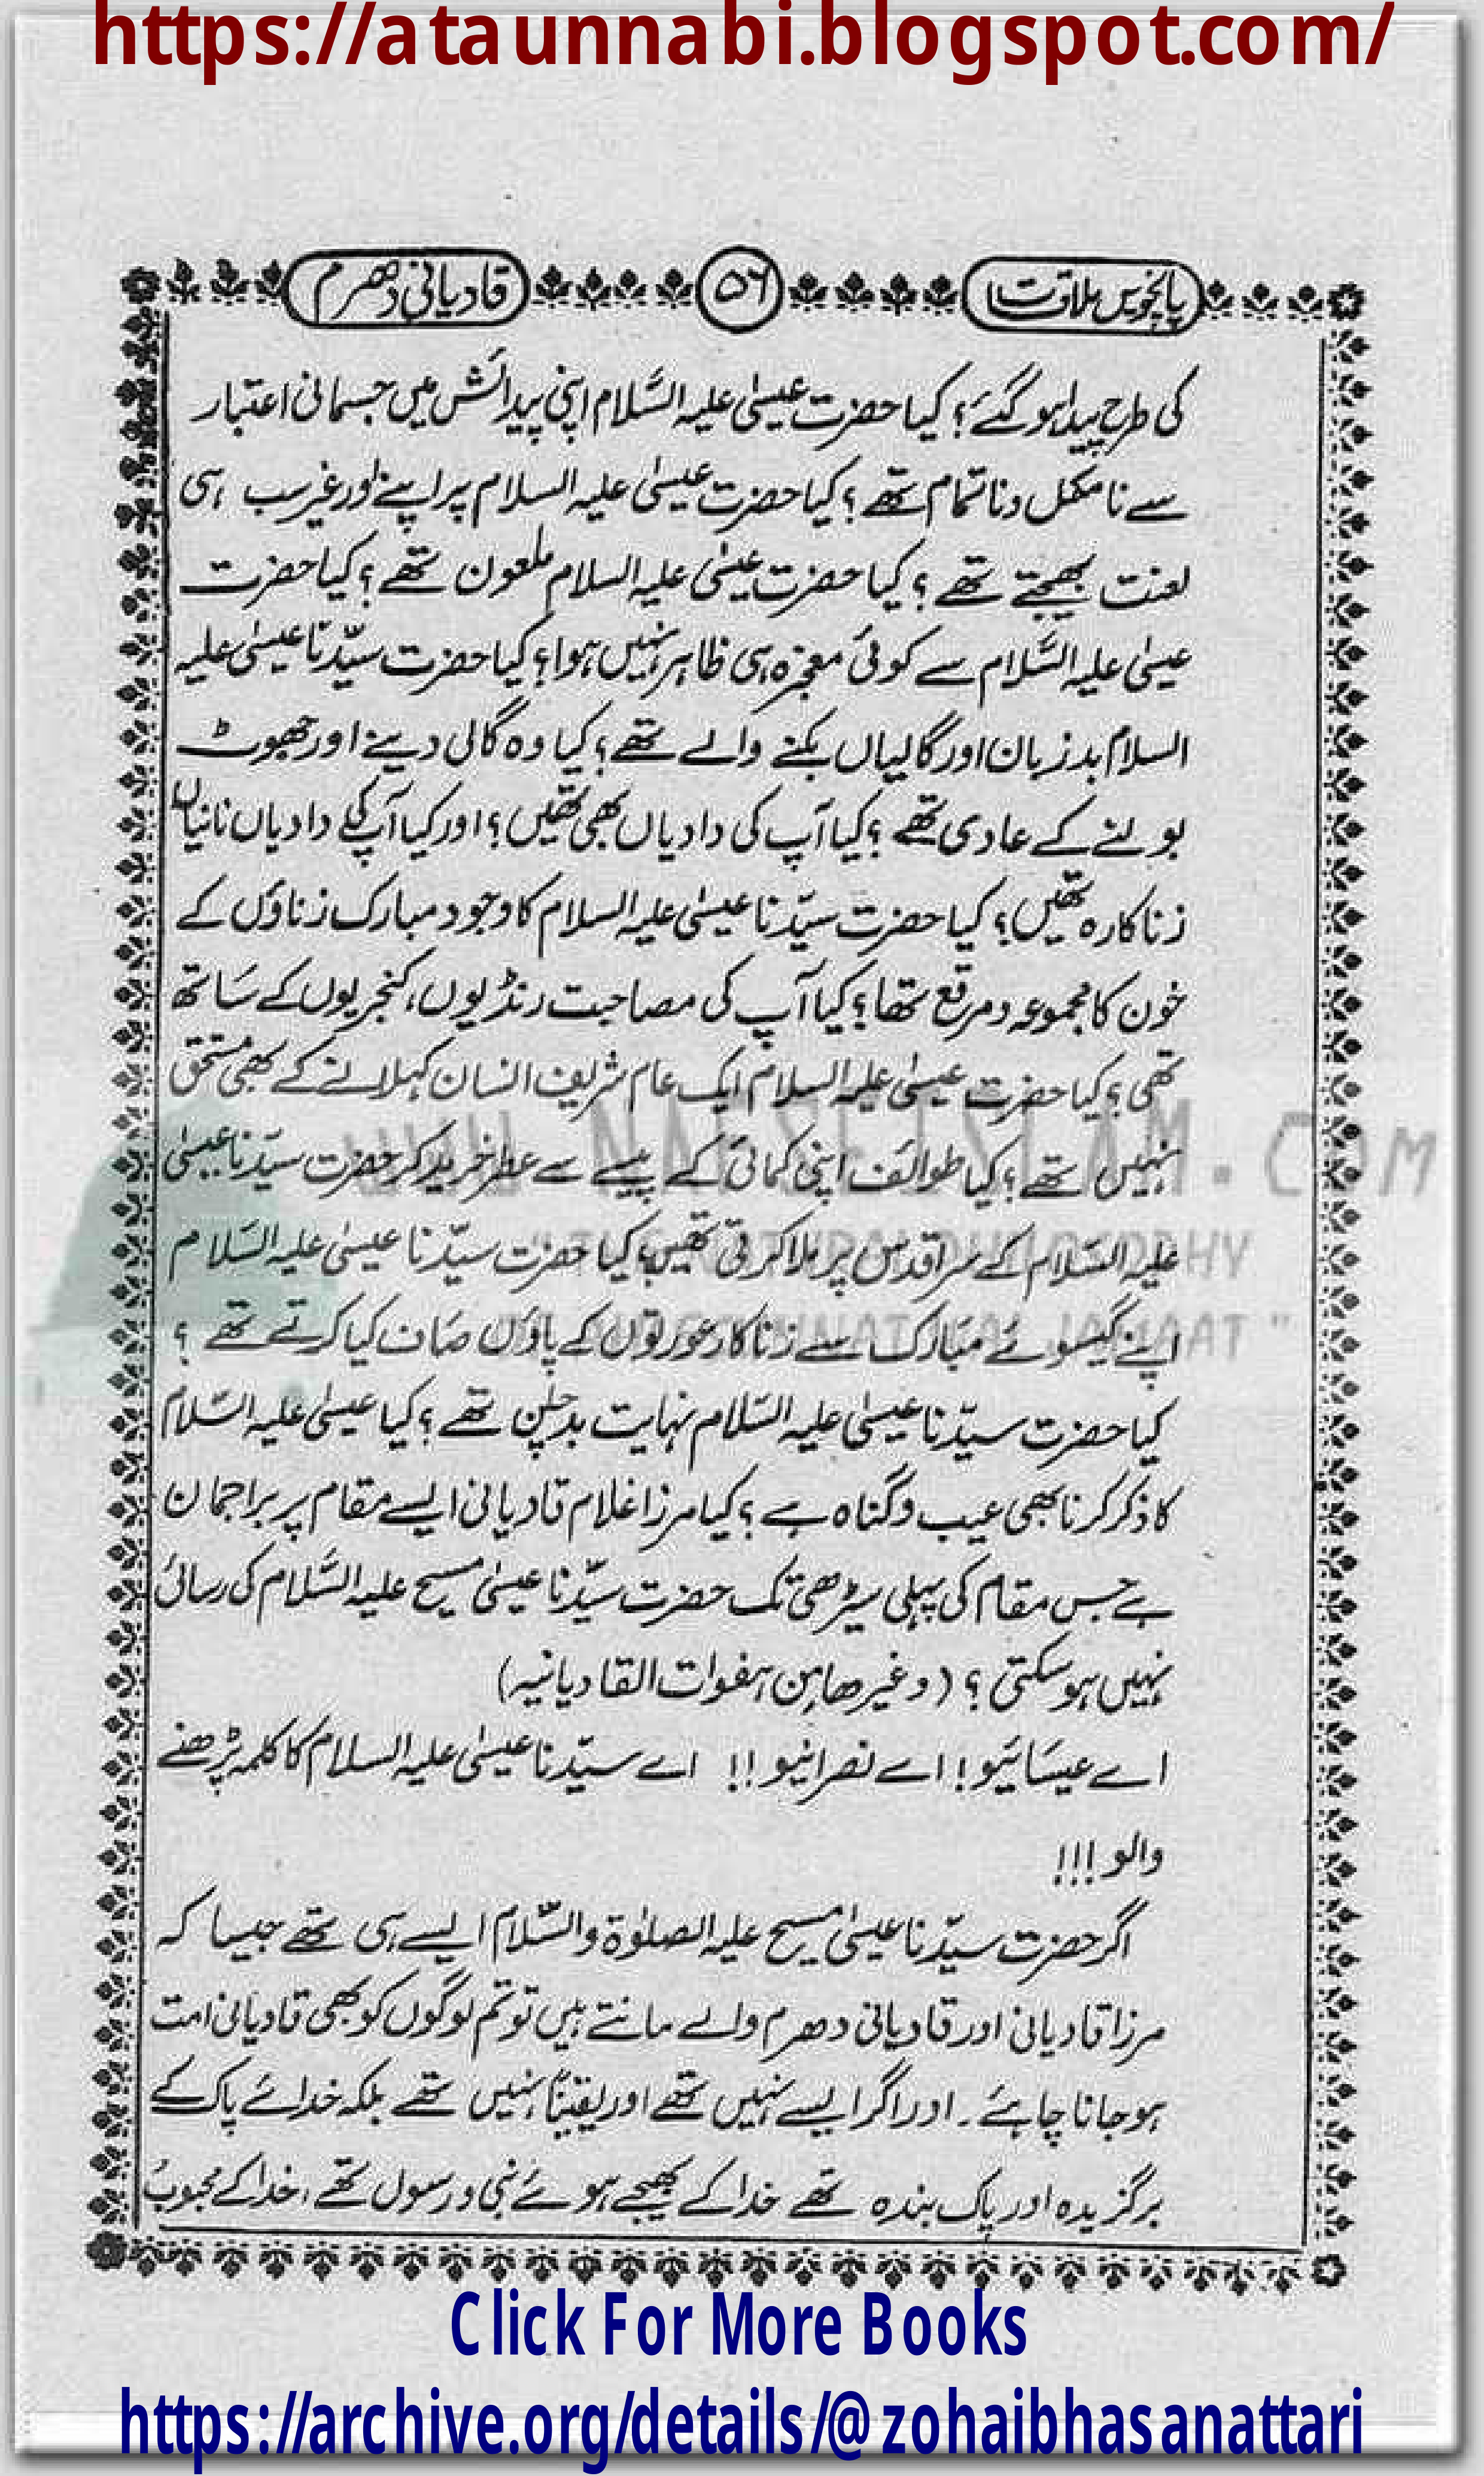 https://ataunnabi.blogspot.com/
پانچویں ملاقات ۵۶ قادیانی دھرم
کی طرح پیدا ہو گئے؟ کیا حضرت عیسیٰ علیہ السَّلام اپنی پیدائش میں جسمانی اعتبار
سے نامکمل وناتمام تھے؟ کیا حضرت عیسیٰ علیہ السلام پر اپنے اور غیر سب ہی
لعنت بھیجتے تھے؟ کیا حضرت عیسیٰ علیہ السلام ملعون تھے؟ کیا حضرت
عیسیٰ علیہ السَّلام سے کوئی معجزہ ہی ظاہر نہیں ہوا؟ کیا حضرت سیّدنا عیسیٰ علیہ
السلام بدزبان اور گالیاں بکنے والے تھے؟ کیا وہ گالی دینے اور جھوٹ
بولنے کے عادی تھے؟ کیا آپ کی دادیاں بھی تھیں؟ اور کیا آپ کی دادیاں نانیاں
زناکارہ تھیں؟ کیا حضرت سیّدنا عیسیٰ علیہ السلام کا وجود مبارک زناؤں کے
خون کا مجموعہ ومرقع تھا؟ کیا آپ کی مصاحبت رنڈیوں، کنجریوں کے ساتھ
تھی؟ کیا حضرت عیسیٰ علیہ السلام ایک عام شریف انسان کہلانے کے بھی مستحق
نہیں تھے؟ کیا طوائف اپنی کمائی کے پیسے سے عطر خرید کر حضرت سیّدنا عیسیٰ
علیہ السّلام کے سر اقدس پر ملا کرتی تھیں؟ کیا حضرت سیّدنا عیسیٰ علیہ السَّلام
اپنے گیسوئے مبارک سے زناکار عورتوں کے پاؤں صاف کیا کرتے تھے؟
کیا حضرت سیّدنا عیسیٰ علیہ السّلام نہایت بدچلن تھے؟ کیا عیسیٰ علیہ السّلام
کا ذکر کرنا بھی عیب وگناہ ہے؟ کیا مرزا غلام قادیانی ایسے مقام پر براجمان
ہے جس مقام کی پہلی سیڑھی تک حضرت سیّدنا عیسیٰ مسیح علیہ السَّلام کی رسائی
نہیں ہو سکتی؟ (وغیرھا من ہفوات القادیانیہ)
اے عیسائیو! اے نصرانیو!! اے سیّدنا عیسیٰ علیہ السلام کا کلمہ پڑھنے
والو!!!
اگر حضرت سیّدنا عیسیٰ مسیح علیہ الصلوٰۃ والسَّلام ایسے ہی تھے جیسا کہ
مرزا قادیانی اور قادیانی دھرم والے مانتے ہیں تو تم لوگوں کو بھی قادیانی امت
ہو جانا چاہئے۔ اور اگر ایسے نہیں تھے اور یقیناً نہیں تھے بلکہ خدائے پاک کے
برگزیدہ اور پاک بندہ تھے خدا کے بھیجے ہوئے نبی ورسول تھے، خدا کے محبوب
Click For More Books
https://archive.org/details/@zohaibhasanattari